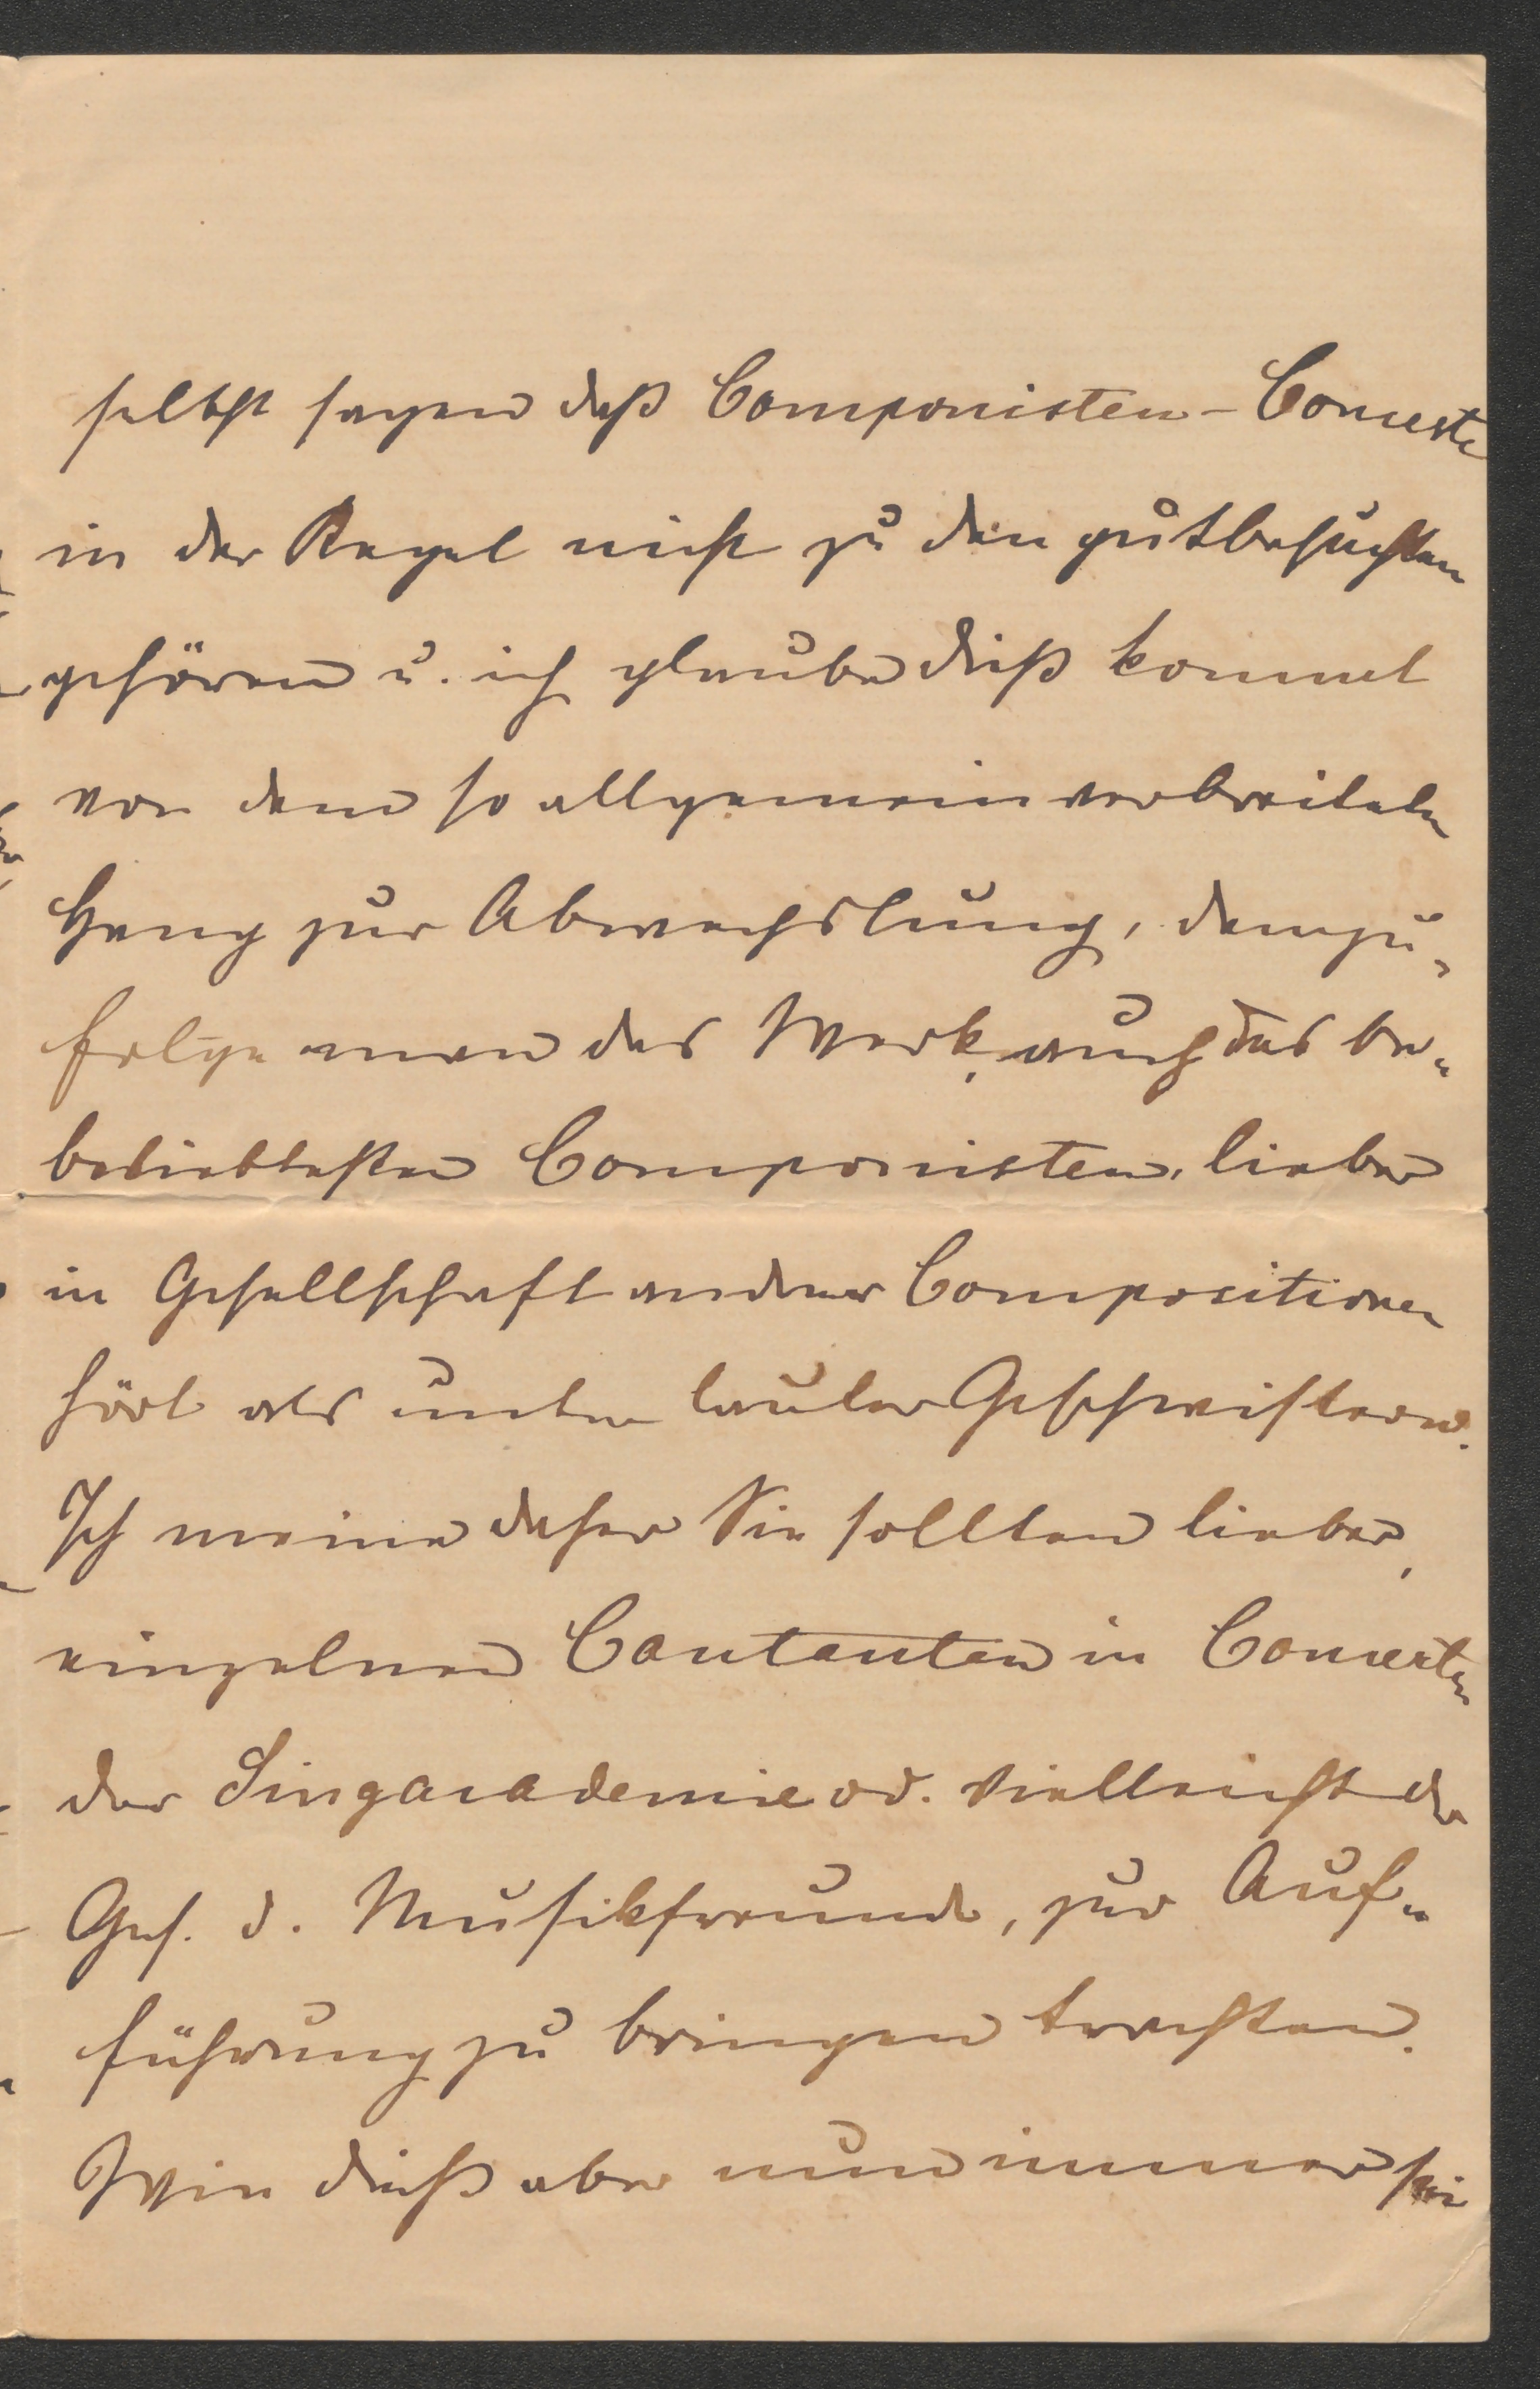 selbst sagen daß Componisten-Concerte
in der Regel nicht zu den gutbesuchten
gehören u. ich glaube dieß kommt
von dem so allgemein verbreiteten
Hang zur Abwechslung, demzu-
folge man das Werk, auch des be-
beliebtesten Componisten, lieber
in Gesellschaft anderer Compositionen
hört als unter lauter Geschwistern.
Ich meine daher Sie sollten lieber,
einzelnen Cantanten in Concerten
der Singacademie od. vielleicht der
Ges. d. Musikfreunde, zur Auf-
führung zu bringen trachten.
Wie dieß aber nun immer sei